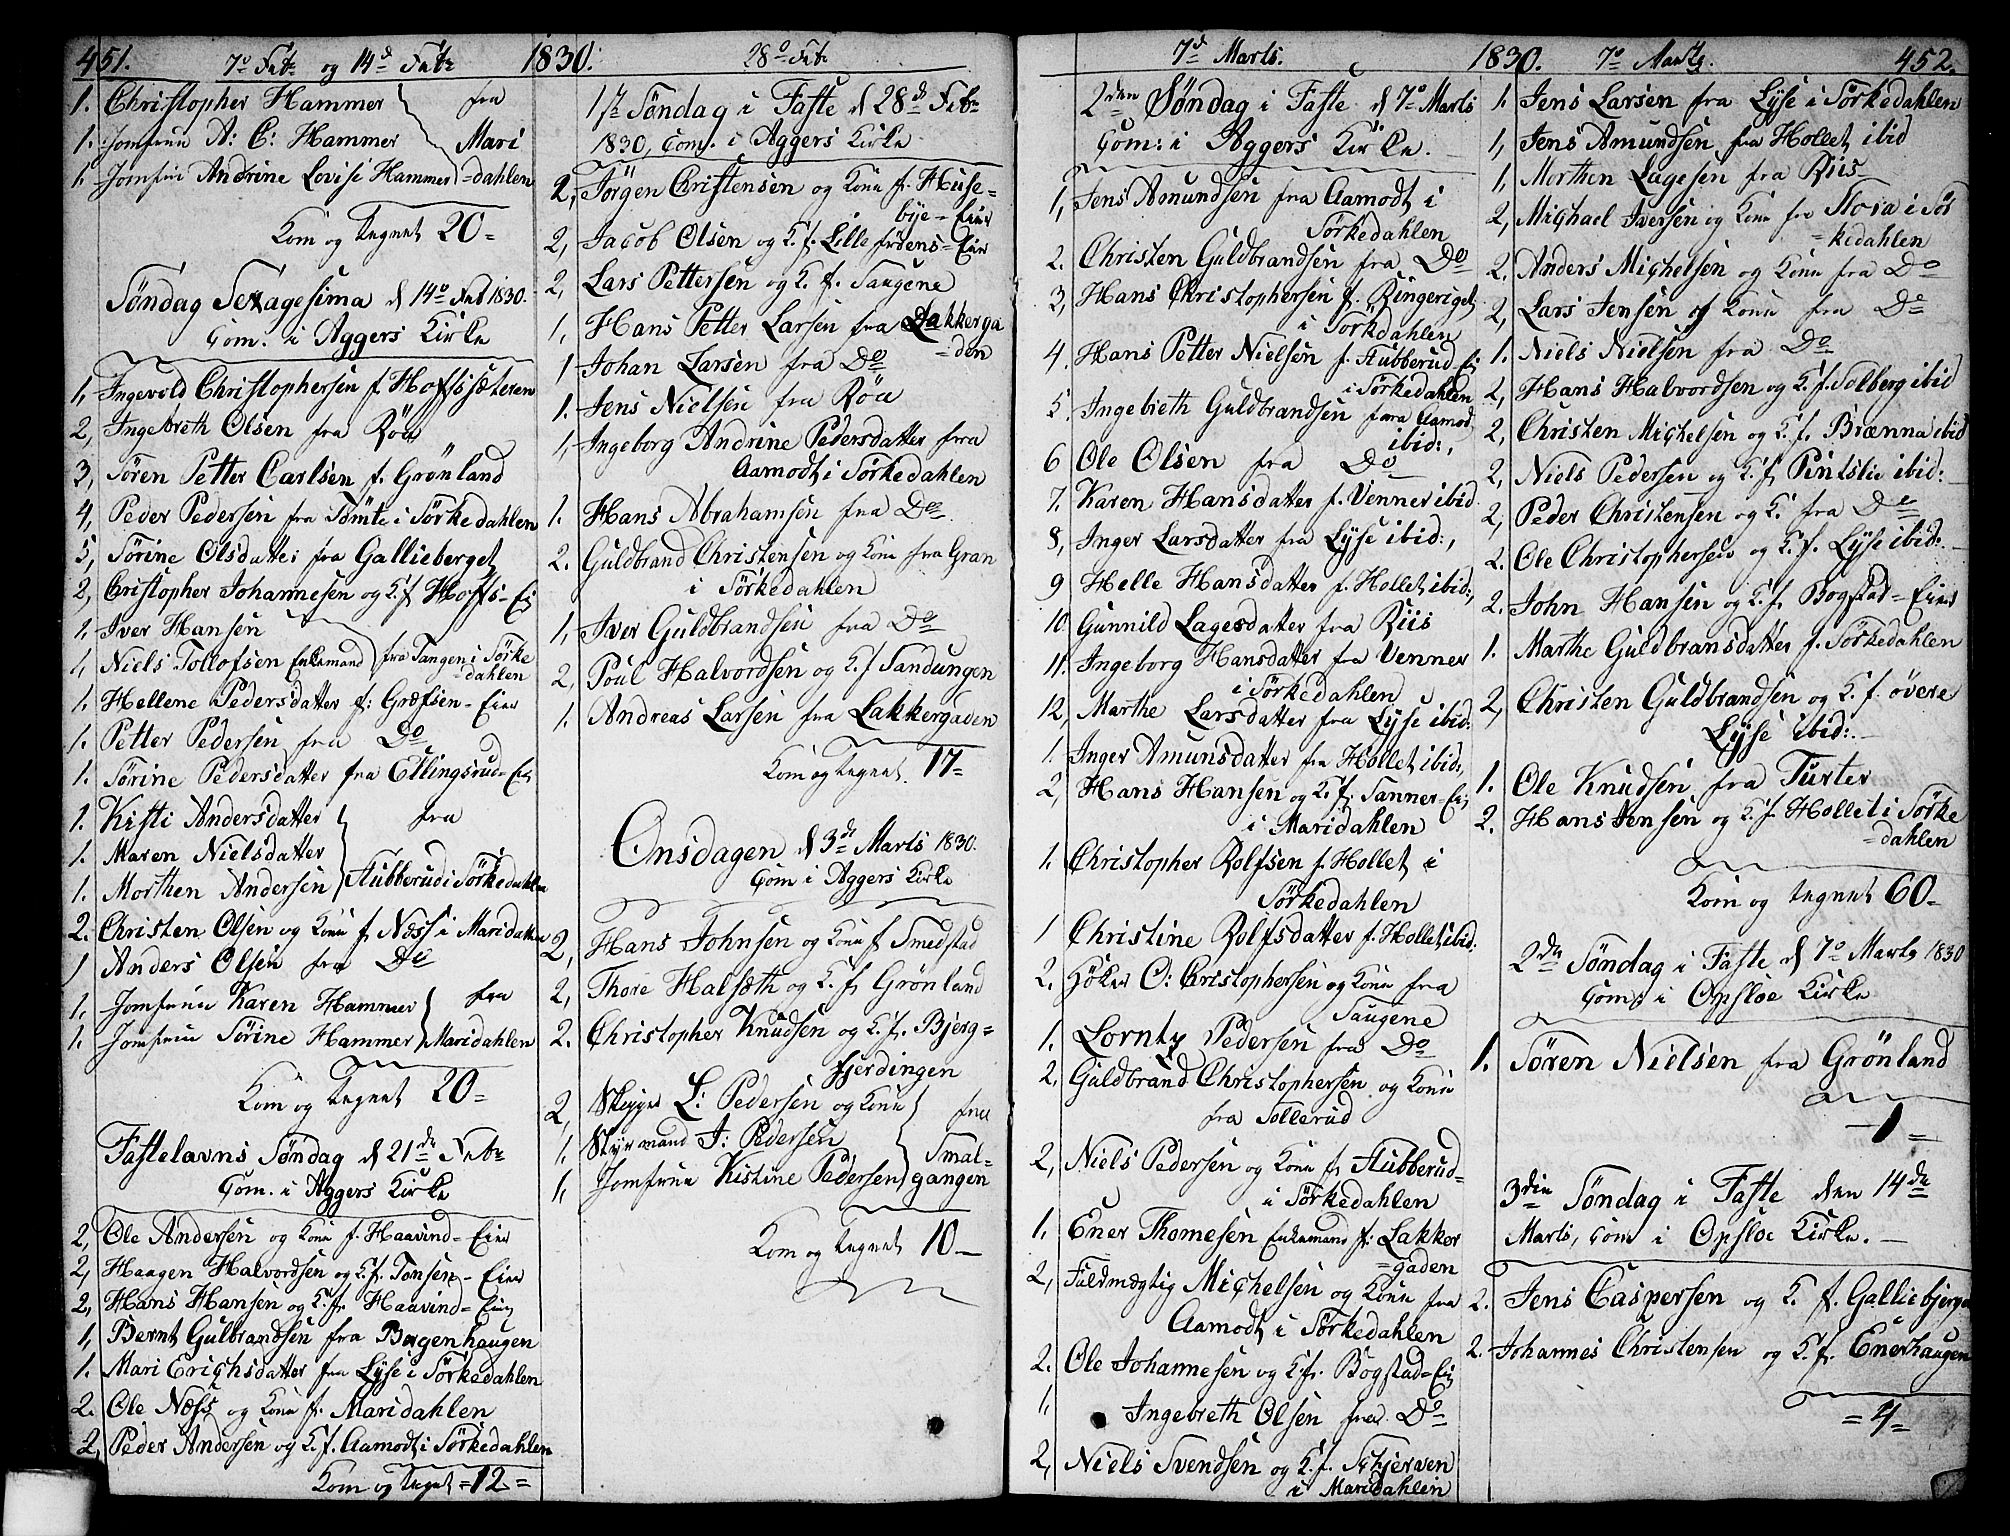 451. 7º Febr og 14d Febr 1830. 28º Febr
1. Christopher Hammer fra
1. Jomfrue A: C: Hammer Mari
1. Jomfrue Andrine Lovise Hammer =dahlen
Kom og tegnet 20=
Søndag Sexagesima d 14º Feb 1830.
Com. i Aggers Kirke
1, Ingevold Christophersen f. Hoffssæteren
2, Ingebreth Olsen fra Röa
3, Sören Petter Carlsen f. Grönland
4, Peder Pedersen fra Tömte i Sörkedahlen
5, Sörine Olsdatter fra Gallieberget
2, Christopher Johannesen og K. f. Hoffs-Eie
1, Iver Hansen
1, Niels Tollofsen Enkemand fra Tangen i Sörke
=dahlen
1. Hellene Pedersdatter f: Græfsen-Eier
1. Petter Pedersen fra Do
1. Sörine Pedersdatter fra Ellingsrud-Eie
1. Kisti Andersdatter fra
1. Maren Nielsdatter
1. Morthen Andersen Stubberud i Sörkedahlen
2. Christen Olsen og Kone f. Næss i Maridahlen
1 Anders Olsen fra Do
1, Jomfrue Karen Hammer fra
1. Jomfrue Sörine Hammer Maridahlen
Kom og tegnet 20=
Fastelavns Søndag d 21de Febr
Com. i Aggers Kirke
2, Ole Andersen og Kone f. Haavind-Eier
2, Haagen Halvordsen og K. f. Tonsen-Eier
2, Hans Hansen og K. f. Haavind-Eie
1, Bernt Gulbrandsen fra Bergenhaugen
1. Mari Erichsdatter fra Lÿse i Sörkedahlen
2. Ole Næss og Kone f. Maridahlen
2, Peder Andersen og K. f. Aamodt i Sörkedahlen
Kom og tegnet =12=
1ste Søndag i Faste d 28d Febr
1830, Com. i Aggers Kirke
2, Jörgen Christensen og Kone f. Huse=
bye-Eier
2, Jacob Olsen og K. f. Lille Frøens-Eier
2, Lars Pettersen og K. f. Saugene
1, Hans Petter Larsen fra Lakkerga
=den
1 Johan Larsen fra Do
1. Jens Nielsen fra Röa
1, Ingeborg Andrine Pedersdatter fra
Aamodt i Sörkedahlen
1. Hans Abrahamsen fra Do
2. Guldbrand Christensen og Kone fra Gran
i Sörkedahlen
1, Iver Guldbrandsen fra Do
2, Poul Halvordsen og K. f. Sandungen
1. Andreas Larsen fra Lakkergaden
Kom og tegnet. 17=
Onsdagen d 3de Marts 1830.
Com i Aggers Kirke
2, Hans Johnsen og Kone f. Smedstad
2, Thore Halsæth og K. f. Grönland
2. Christopher Knudsen og K. f. Bjerg=
fjerdingen
2, Skipper L: Pedersen og Kone fra
1, Styrmand J: Pedersen Smal=
1, Jomfrue Kistine Pedersen gangen
Kom og tegnet 10—
7d Marts. 1830. 7º Marts. 452.
2den Søndag i Faste d 7º Marts
Com: i Aggers Kirke.
1, Jens Amundsen fra Aamodt i
Sörkedahlen
2. Christen Guldbrandsen fra Do
3, Hans Christophersen f. Ringeriget
i Sörkedahlen
4. Hans Petter Nielsen f. Stubberud-Ei
i Sörkedahlen
5. Ingebreth Guldbrandsen fra Aamod
ibid:,
6 Ole Olsen fra Do
7. Karen Hansdatter f. Venner ibid
8, Inger Larsdatter fra Lÿse ibid:,
9 Helle Hansdatter f. Hollet ibid:,
10. Gunnild Lagesdatter fra Riis
11. Ingeborg Hansdatter fra Venner
i Sörkedahlen
12, Marthe Larsdatter fra Lÿse ibid:
1. Inger Amunsdatter fra Hollet ibid:,
2, Hans Hansen og K. f. Sanner-Ei
i Maridahlen
1. Christopher Rolfsen f. Hollet i
Sörkedahlen
1 Christine Rolfsdatter f. Hollet ibid:
2. Höker O: Christophersen og Kone fra
Saugene
1. Lorntz Pedersen fra Do
2, Guldbrand Christophersen og Kone
fra Sollerud
2, Niels Pedersen og Kone f. Stubberud-
i Sörkedahlen
1. Ener Thomesen Enkemand f. Lakker
=gaden
2, Fuldmægtig Michelsen og Kone fra
Aamodt i Sörkedahlen
2. Ole Johannesen og K. f. Bogstad-Eie
1, Ingebreth Olsen fra Do
2, Niels Svendsen og K. f. Skjerven
i Maridahlen
1. Jens Larsen fra Lÿse i Sörkedahlen
1, Jens Amundsen fra Hollet ibid
1, Morthen Lagesen fra Riis
2, Michael Iversen og Kone fra Flosa i Sör
=kedahlen
2. Anders Michelsen og Kone fra Do
2, Lars Jensen og Kone fra Do
1. Niels Nielsen fra Do
2, Hans Halvordsen og K. f. Solberg ibid
2, Christen Michelsen og K. f. Brænna ibid
2, Niels Pedersen og K. f. Pintslie ibid:
2, Peder Christensen og K. fra Do
2. Ole Christophersen og K. f. Lÿse ibid:
2. John Hansen og K. f. Bogstad-Eier
1. Marthe Guldbransdatter f. Sörkedahlen
2, Christen Guldbrandsen og K. f. övere
Lÿse ibid:
1. Ole Knudsen fra Turter
2. Hans Jensen og K. f. Hollet i Sörke
=dahlen
Kom og tegnet 60=
2den Søndag i Faste d 7º Marts 1830
Com: i Opsloe Kirke
1. Sören Nielsen fra Grönland
—1=
3die Søndag i Faste den 14de
Marts, Com i Opsloe Kirke.—
2. Jens Caspersen og K. f. Galliebjerge
2. Johannes Christensen og K. f. Enerhaugen
=4=